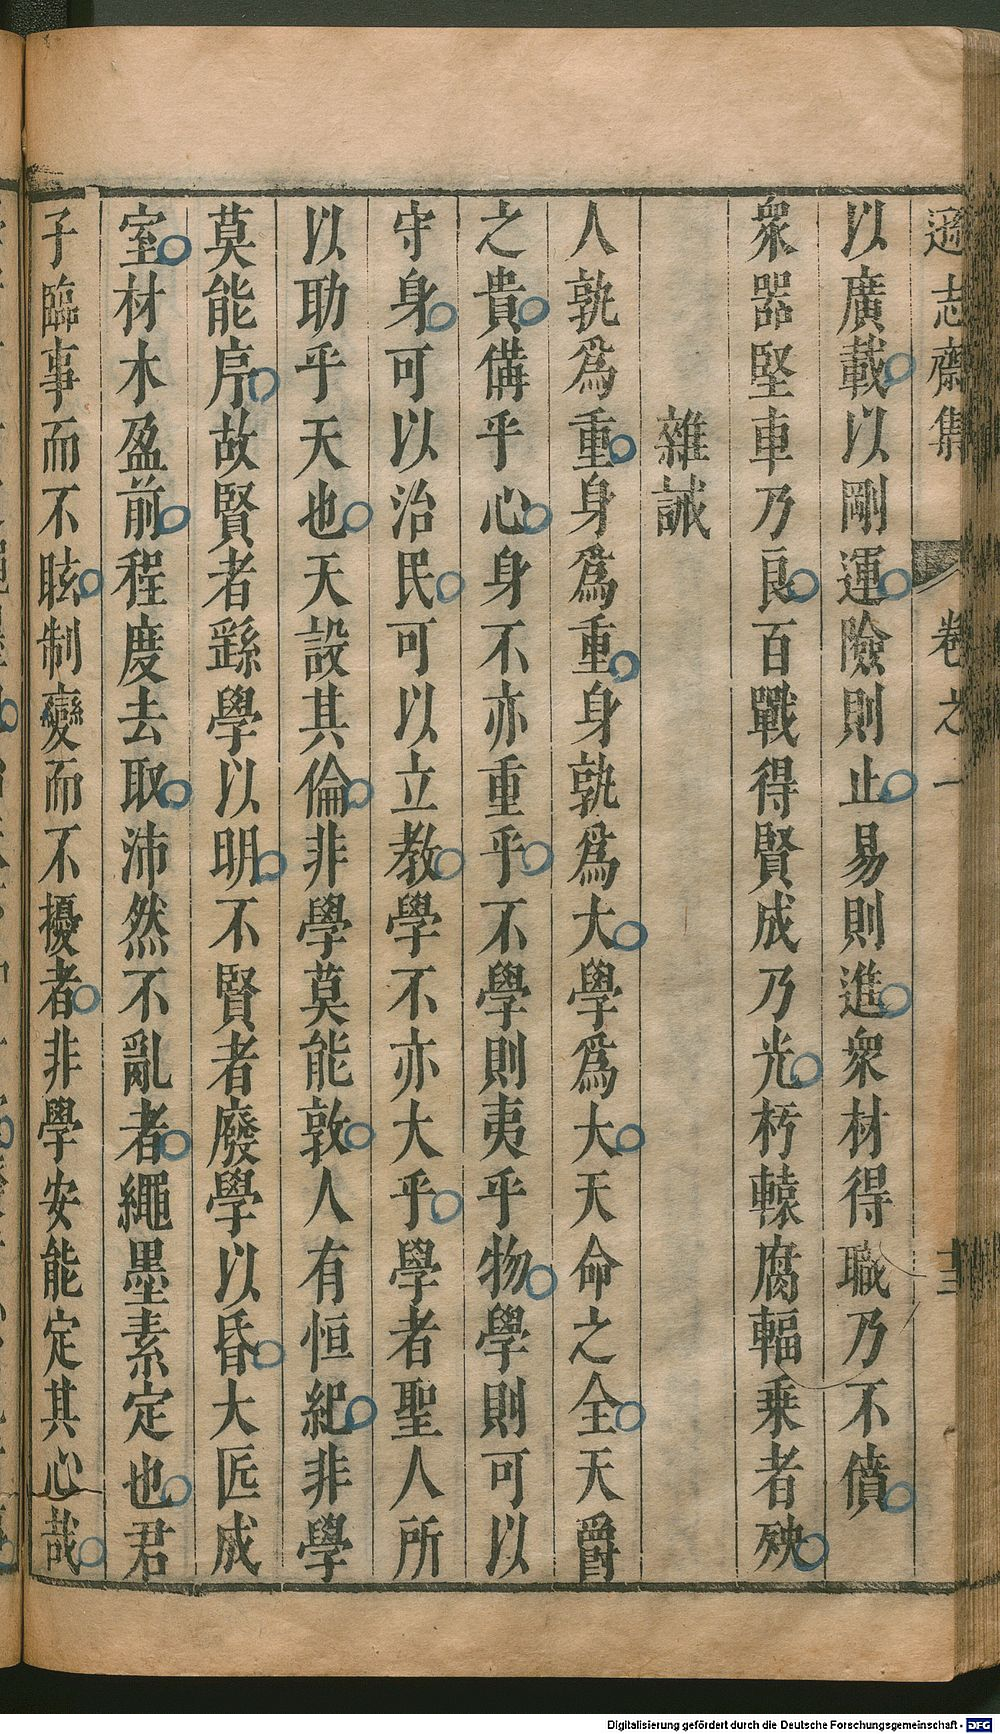 遜志齋集 卷之一 十三
以廣載以剛運險則止易則進衆材得職乃不僨
衆器堅車乃良百戰得賢成乃光朽轅腐輻乗者殃
雜誡
人孰爲重身爲重身孰爲大學爲大天命之全天爵
之貴備乎心身不亦重乎不學則夷乎物學則可以
守身可以治民可以立教學不亦大乎學者聖人所
以助乎天也天設其倫非學莫能敦人有恒紀非學
莫能序故賢者繇學以明不賢者廢學以昏大匠成
室材木盈前程度去取沛然不亂者繩墨素定也君
子臨事而不眩制變而不擾者非學安能定其心哉
Digitalisierung gefördert durch die Deutsche Forschungsgemeinschaft - DFG